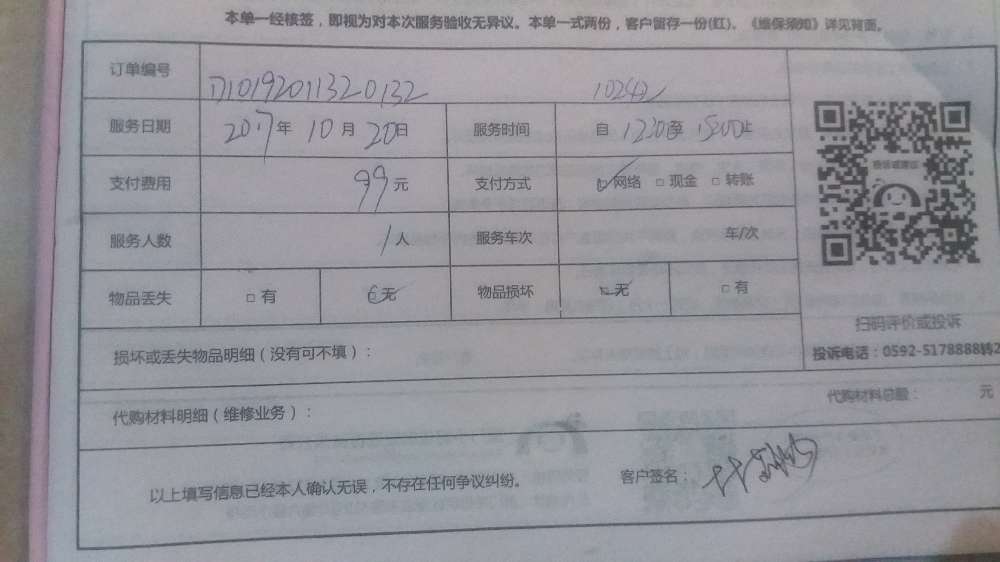 本单一经核签，即视为对本次服务验收无异议。本单一式两份，客户留存一份(红)、《维保须知》详见背面。
订单编号 D10192011320132 10242
服务日期 2017年 10月 20日 服务时间 自 1230至 1500止
支付费用 99元 支付方式 ☑网络 □现金 □转账
服务人数 1人 服务车次 车/次
物品丢失 □有 ☑无 物品损坏 ☑无 □有
扫码评价或投诉
损坏或丢失物品明细（没有可不填）：
投诉电话：0592-5178888转2
代购材料明细（维修业务）：
代购材料总额： 元
以上填写信息已经本人确认无误，不存在任何争议纠纷。 客户签名：